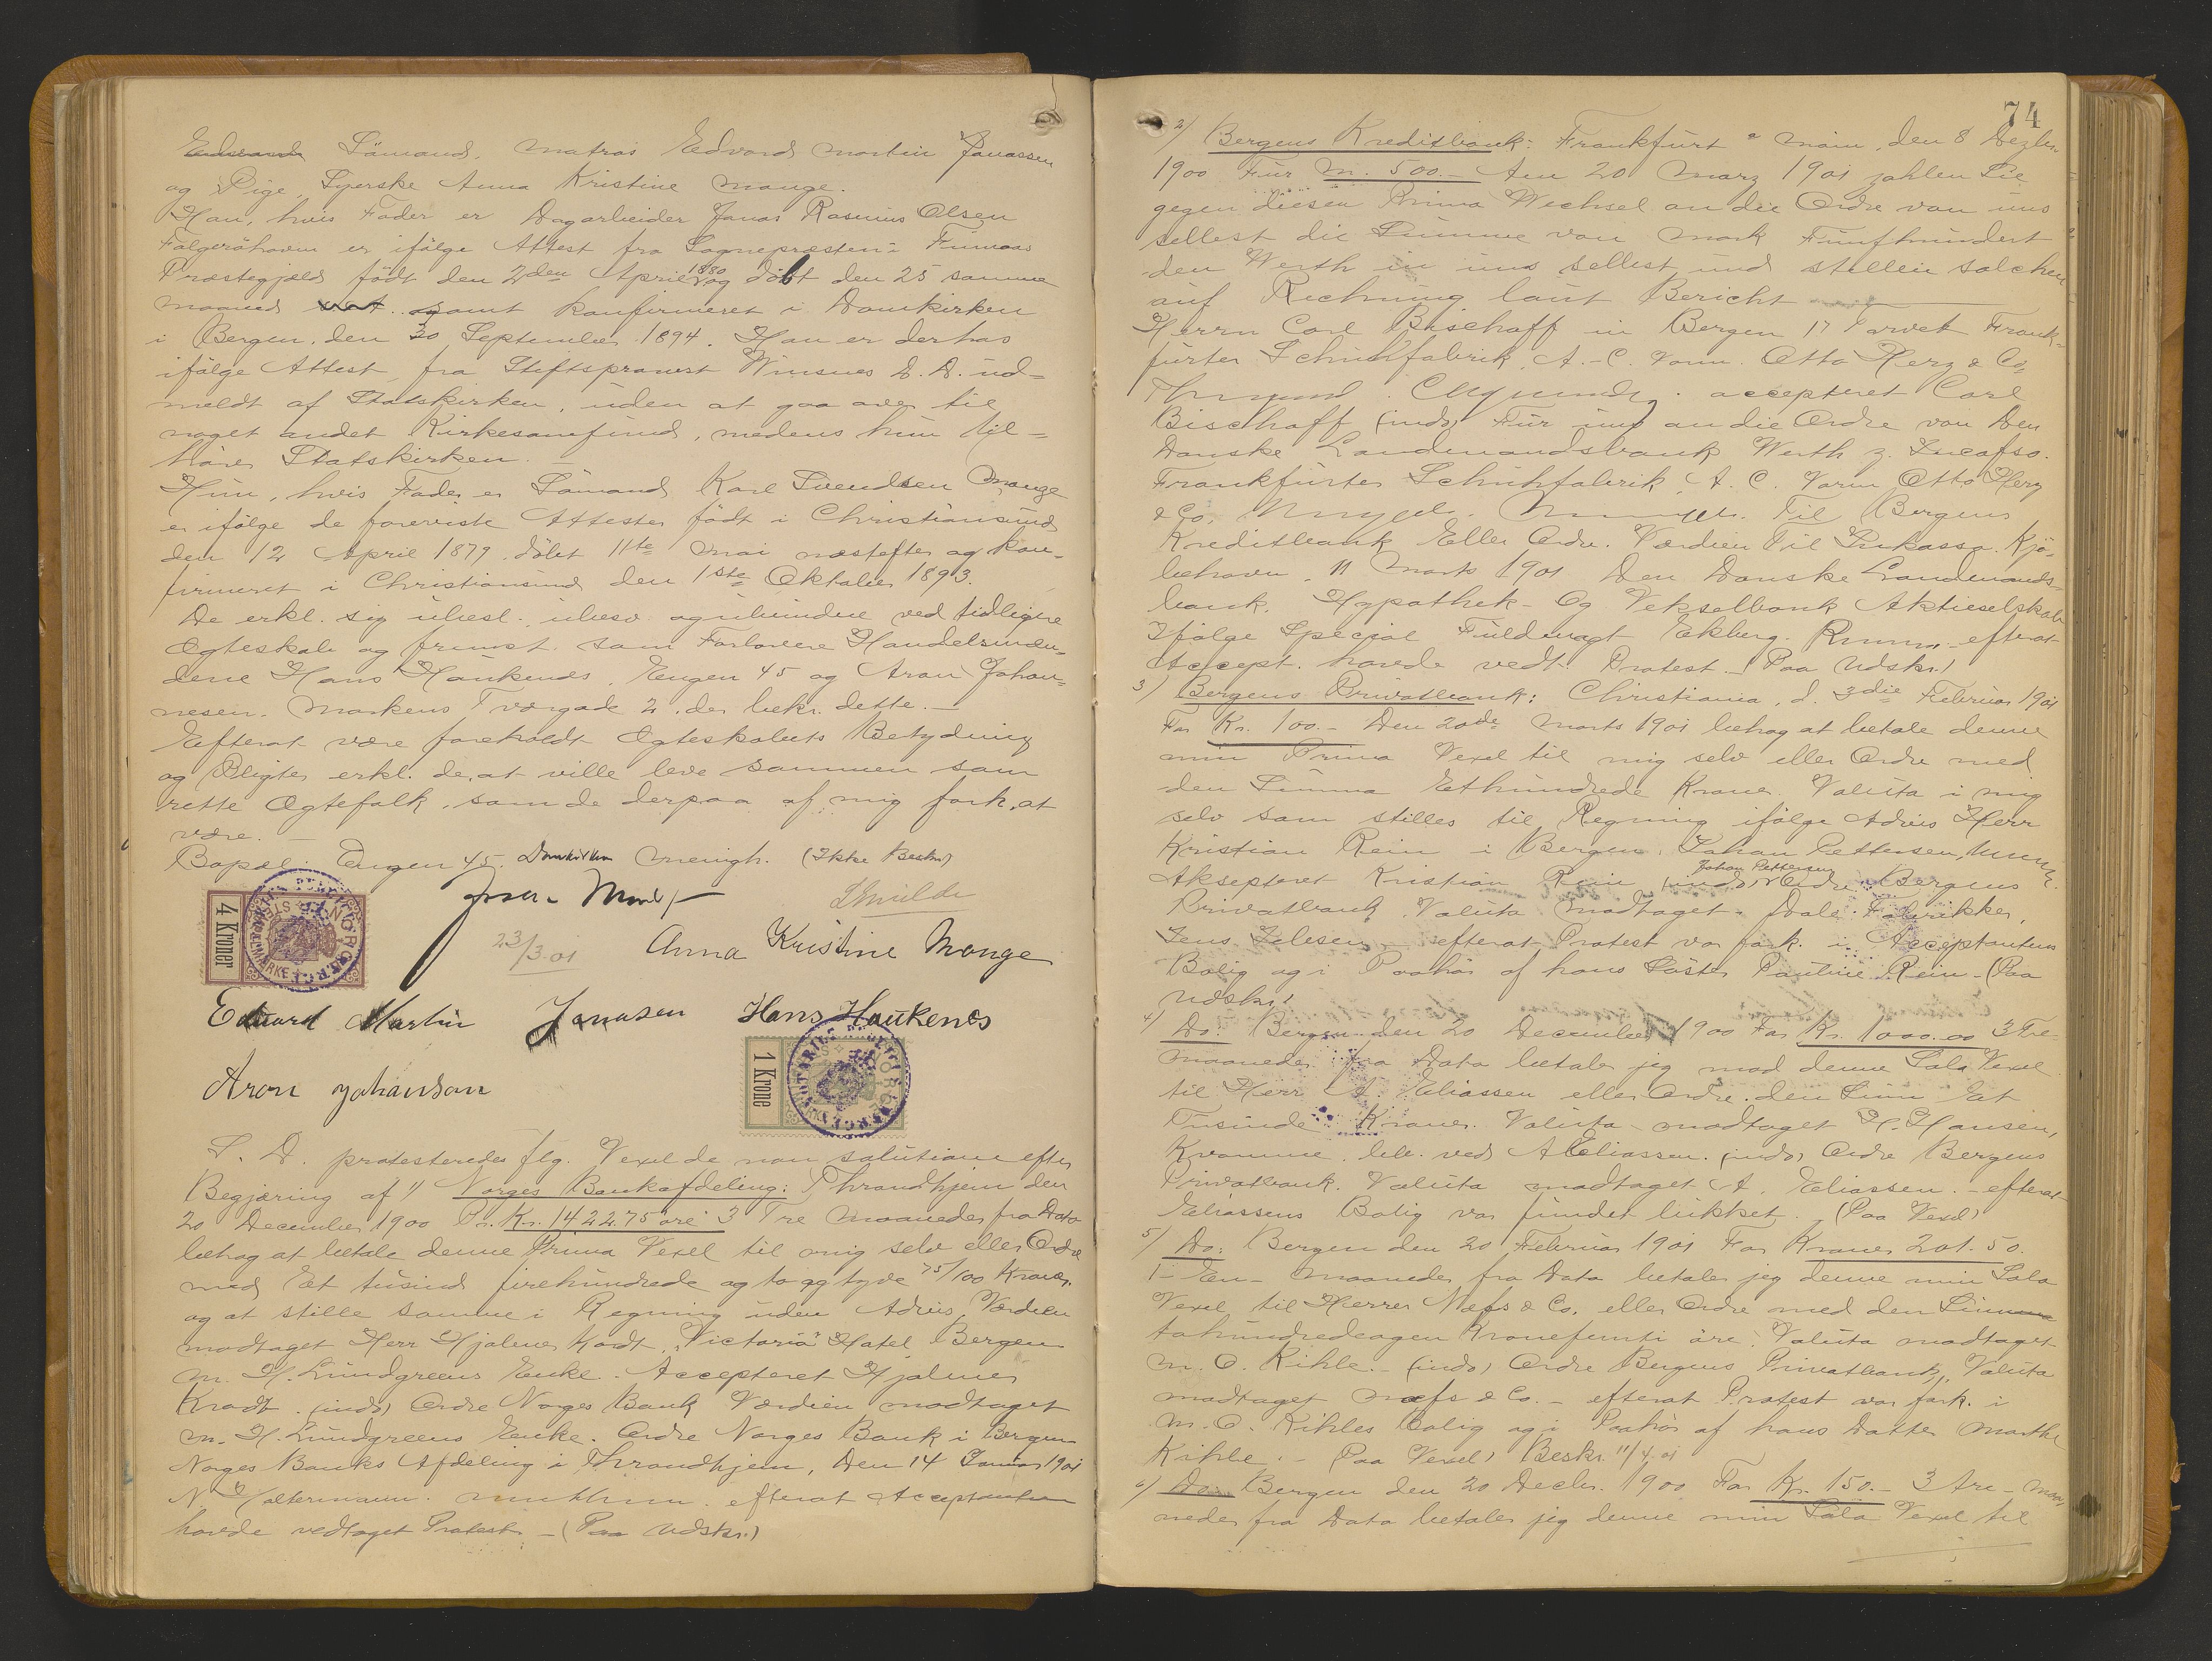 Sömand, Matros Edvard Martin Janassen
og Pige, Syerske Anna Kristine Monge.
Han, hvis Fader er Dagarbeider Janas Rasmus Olsen
Folgeröhavn er ifölge Attest fra Sognepresten i Finnaas
Præstegjeld födt den 2den April 1880 og döbt den 25 samme
maaned samt konfirmeret i Domkirken
i Bergen, den 30 September 1894. Han er derhos
ifölge Attest fra Stiftsprovst Winsnes D. D. ud-
meldt af Statskirken, uden at gaa over til
noget andet Kirkesamfund, medens hun til-
hörer Statskirken.
Hun, hvis Fader er Sömand Karl Svendsen Monge
er ifölge de foreviste Attester födt i Christiansund
den 12 April 1879 döbt 11te Mai næstefter og kon-
firmeret i Christiansund den 1ste Oktober 1893.
De erkl. sig ubesl. ubesv. og ubundne ved tidligere
Ægteskab og fremst. som Forlovere Handelsmæn-
dene Hans Haukenes, Engen 45 og Aron Johan-
nesen. Markens Tværgade 2. der bekr. dette. —
Efterat være foreholdt Ægteskabets Betydning
og Pligter erkl. de, at ville leve sammen som
rette Ægtefolk, som de derpaa af mig fork. at
være. —
Bopæl: Engen 45. Domkirken Menigh. (Ikke Beskr.)
23/3.01 Anna Kristine Monge
4 Kroner
Edvard Martin Jonasen Hans Haukenes
1 Krone
Aron Johanson
S. D. protesteredes flg. Vexel de non solutione efter
Begjæring af 1) Norges Bankafdeling: Thrandhjem den
20 December 1900 Pr. Kr. 1422.75 öre 3 Tre Maaneder fra Dato
behag at betale denne Prima Vexel til mig selv eller Ordre
med Et tusind firehundrede og to og tyve 75/100 Kroner.
og at stille samme i Regning uden Advis. Værdien
modtaget Herr Hjalmer Kordt, "Victoria" Hotel Bergen
M. H. Lundgreens Enke. Accepteret Hjalmer
Kradt. (indo) Ordre Norges Bank Værdien modtaget
M. H. Lundgreens Enke. Ordre Norges Bank i Bergen
Norges Banks Afdeling i Thrandhjem, Den 14 Januar 1901
N. Woltermann. efterat Acceptanten
havde vedtaget Protest. — (Paa Udskr.)
74
2) Bergens Kreditbank: Frankfurt a Main, den 8 Dezbr.
1900 Für M. 500.— Am 20 März 1901 zahlen Sie
gegen diesen Prima Wechsel an die Ordre von uns
selbst die Summe von Mark Fünfhundert
den Werth in uns selbst und stellen solchen
auf Rechnung laut Bericht
Herrn Carl Bischoff in Bergen 17 Torvet Frank-
furter Schuhfabrik, A.-C. Vorm Otto Herz & Co,
accepteret Carl
Bischoff (indo) Für uns an die Ordre von Den
Danske Landmandsbank Werth z. Incasso.
Frankfurter Schuhfabrik, A. C. Vorm Otto Herz
& Co. Til Bergens
Kreditbank Eller Ordre. Værdien Til Inkasso. Kjö-
behavn, 11 Marts 1901 Den Danske Landmands-
bank. Hypothek- Og Vekselbank Aktieselskab
Ifölge Special Fuldmagt Ekberg. efterat
Accept. havde vedt. Protest. (Paa Udskr.)
3) Bergens Privatbank: Christiania, d. 3die Februar 1901
For Kr. 100.— Den 20de Marts 1901 behag at betale denne
min Prima Vexel til mig selv eller Ordre med
den Summa Ethundrede Kroner. Valuta i mig
selv som stilles til Regning ifölge Advis Herr
Kristian Rein i Bergen. Johan Pettersen,
Aksepteret Kristian Rein (indo) Johan Pettersen Ordre Bergens
Privatbank Valuta modtaget. Dale Fabrikker,
Jens Jebsen — efterat Protest var fork. i Acceptantens
Bolig og i Paahör af hans Söster Pauline Rein — (Paa
Udskr.)
4) Do: Bergen den 20 December 1900 For Kr. 1000.00 3 Tre
maaneder fra Dato betaler jeg mod denne Sola Vexel
til Herr A. Eliassen eller Ordre den Sum Et
Tusinde Kroner. Valuta modtaget H. Hansen,
Kvamme. bet. ved A Eliassen. (indo) Ordre Bergens
Privatbank. Valuta modtaget A. Eliassen. — efterat
Eliassens Bolig var fundet lukket. (Paa Vexel)
5) Do: Bergen den 20 Februar 1901 For Kroner 201.50.
1- En- Maaneder fra Dato betaler jeg denne min Sola
Vexel til Herrer Næss & Co. eller Ordre med den Summa
tohundredeogen Kronefemti öre. Valuta modtaget
M. O. Kihle. — (indo) Ordre Bergens Privatbank, Valuta
modtaget Næss & Co. — efterat Protest var fork. i
M. O. Kihles Bolig og i Paahör af hans Datter Marthe
Kihle. — (Paa Vexel) Beskr. 11/4.01
6) Do: Bergen den 20 Decbr. 1900 For Kr. 150.— 3 Tre - Maa-
neder fra Dato betaler jeg denne min Sola Vexel til